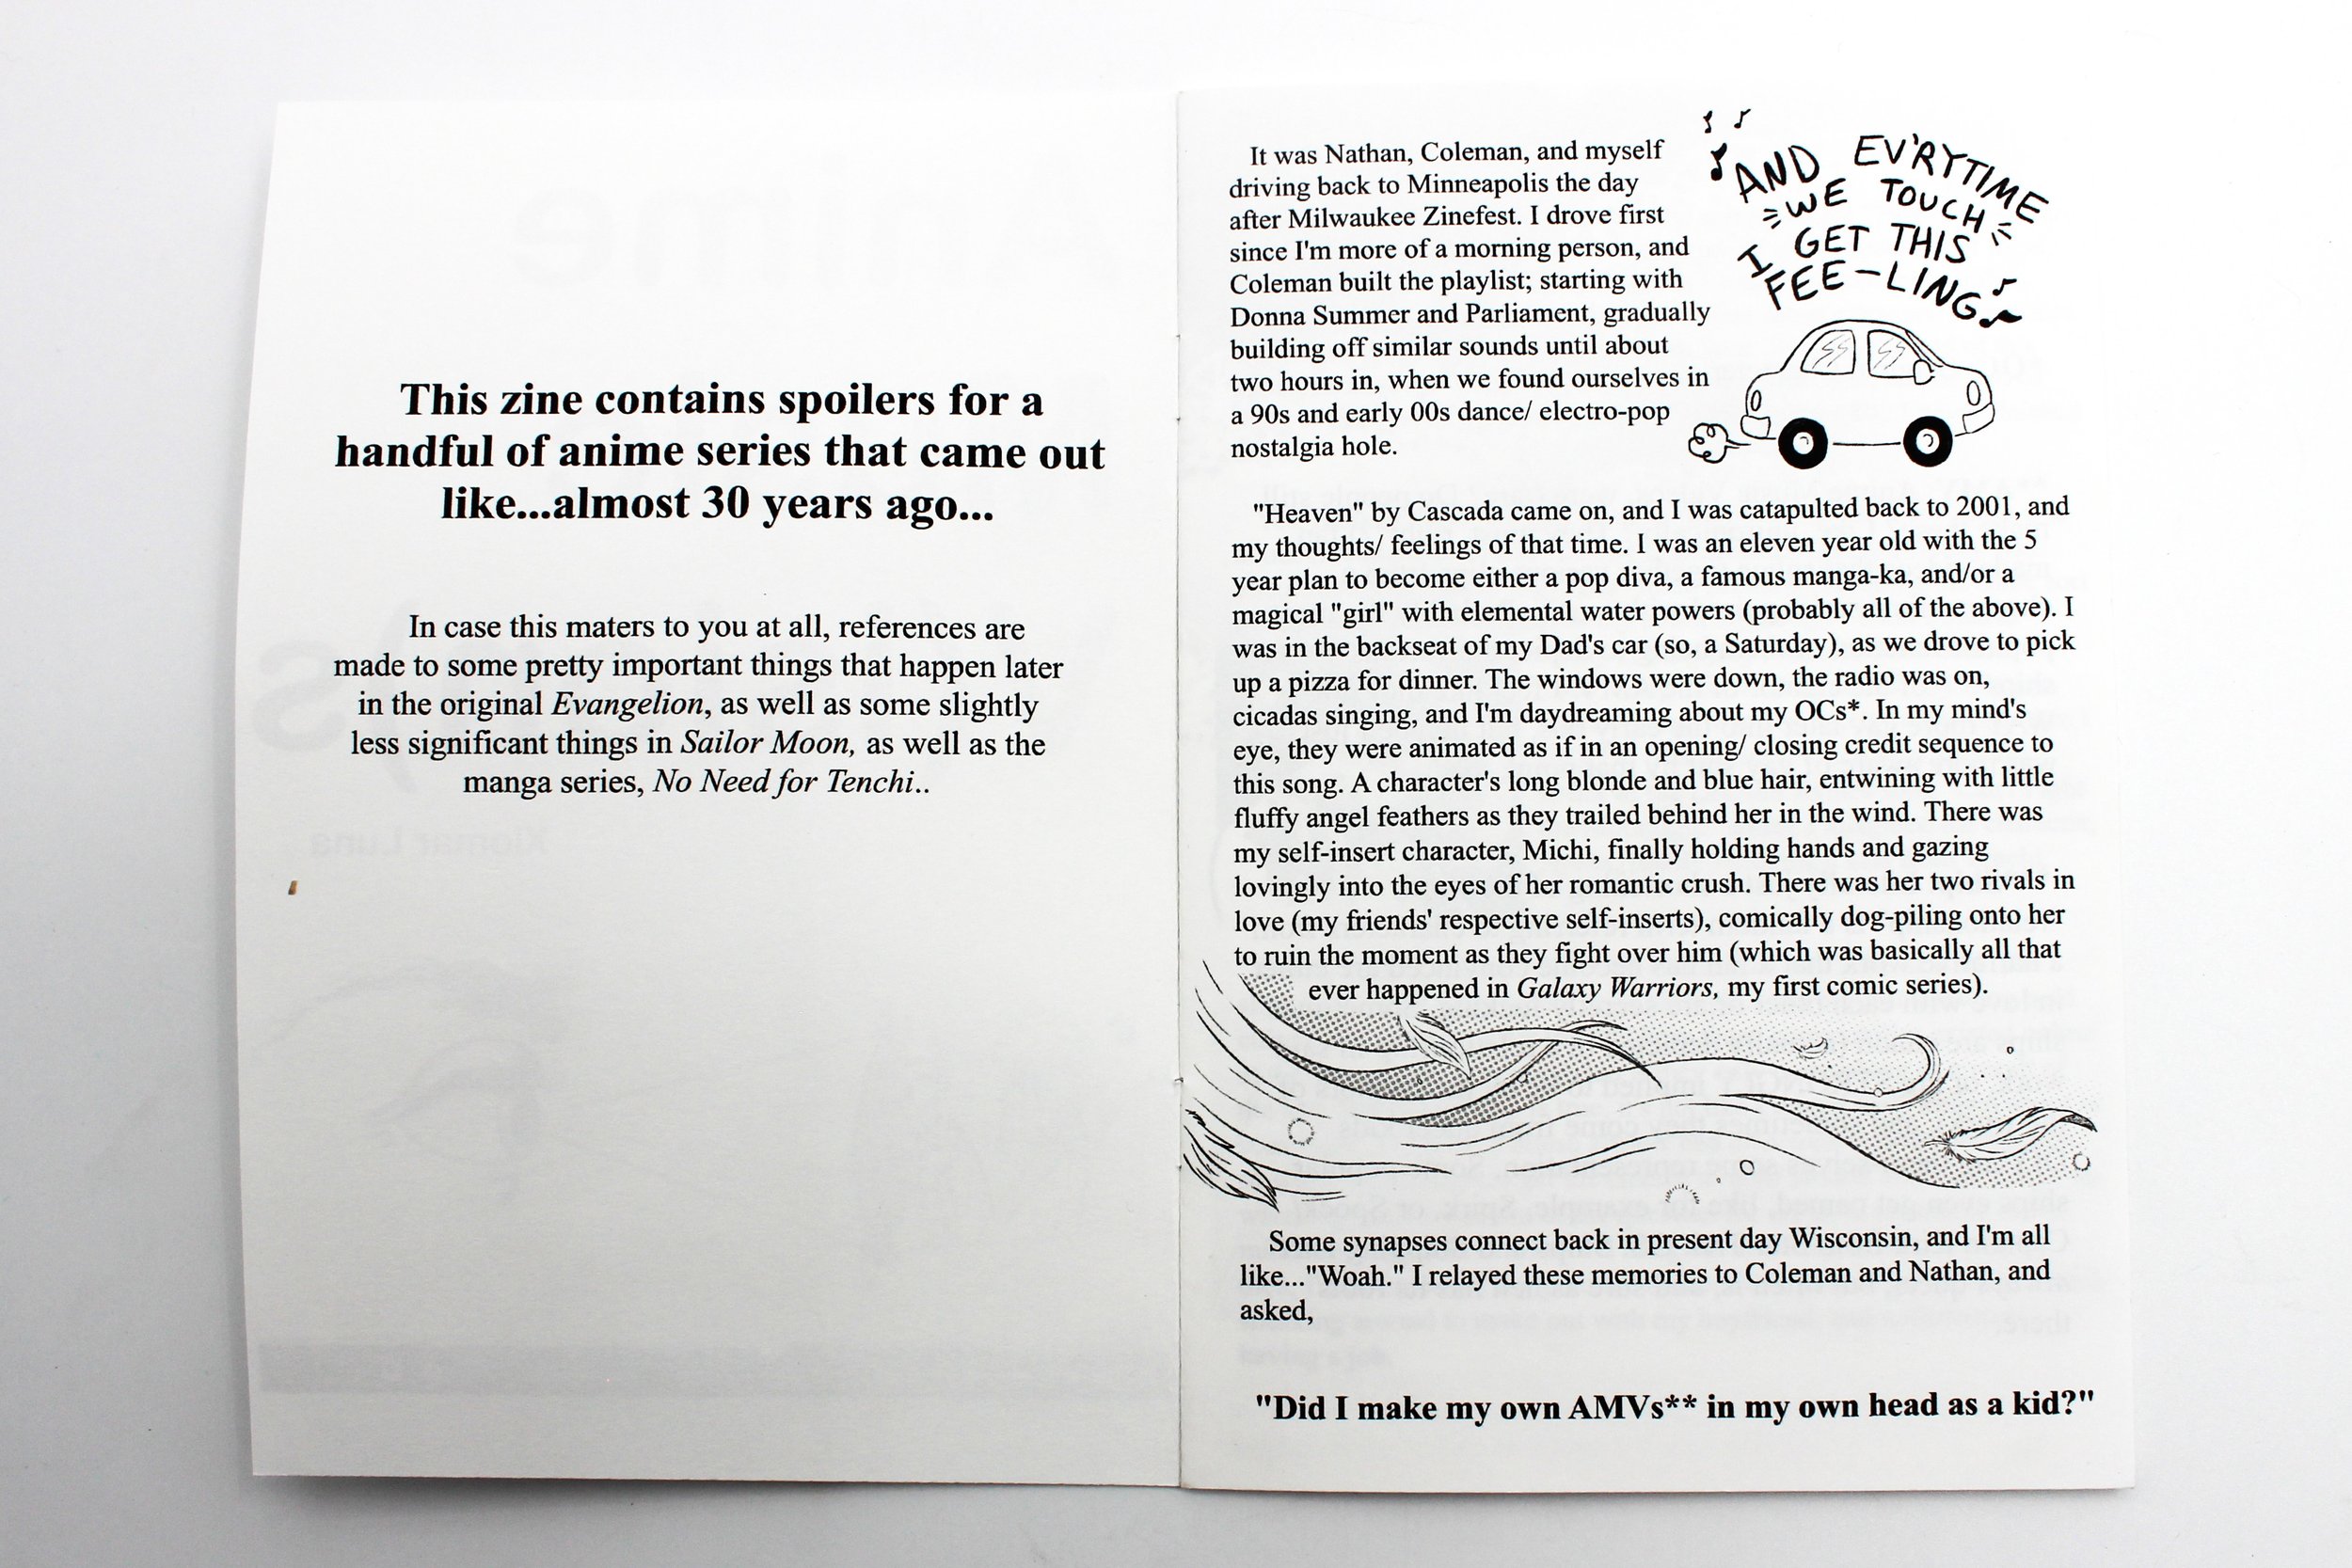 This zine contains spoilers for a
handful of anime series that came out
like...almost 30 years ago...
In case this maters to you at all, references are
made to some pretty important things that happen later
in the original Evangelion, as well as some slightly
less significant things in Sailor Moon, as well as the
manga series, No Need for Tenchi..
It was Nathan, Coleman, and myself
driving back to Minneapolis the day
after Milwaukee Zinefest. I drove first
since I'm more of a morning person, and
Coleman built the playlist; starting with
Donna Summer and Parliament, gradually
building off similar sounds until about
two hours in, when we found ourselves in
a 90s and early 00s dance/ electro-pop
nostalgia hole.
AND EV'RYTIME
WE TOUCH
I GET THIS
FEE-LING
"Heaven" by Cascada came on, and I was catapulted back to 2001, and
my thoughts/ feelings of that time. I was an eleven year old with the 5
year plan to become either a pop diva, a famous manga-ka, and/or a
magical "girl" with elemental water powers (probably all of the above). I
was in the backseat of my Dad's car (so, a Saturday), as we drove to pick
up a pizza for dinner. The windows were down, the radio was on,
cicadas singing, and I'm daydreaming about my OCs*. In my mind's
eye, they were animated as if in an opening/ closing credit sequence to
this song. A character's long blonde and blue hair, entwining with little
fluffy angel feathers as they trailed behind her in the wind. There was
my self-insert character, Michi, finally holding hands and gazing
lovingly into the eyes of her romantic crush. There was her two rivals in
love (my friends' respective self-inserts), comically dog-piling onto her
to ruin the moment as they fight over him (which was basically all that
ever happened in Galaxy Warriors, my first comic series).
Some synapses connect back in present day Wisconsin, and I'm all
like..."Woah." I relayed these memories to Coleman and Nathan, and
asked,
"Did I make my own AMVs** in my own head as a kid?"